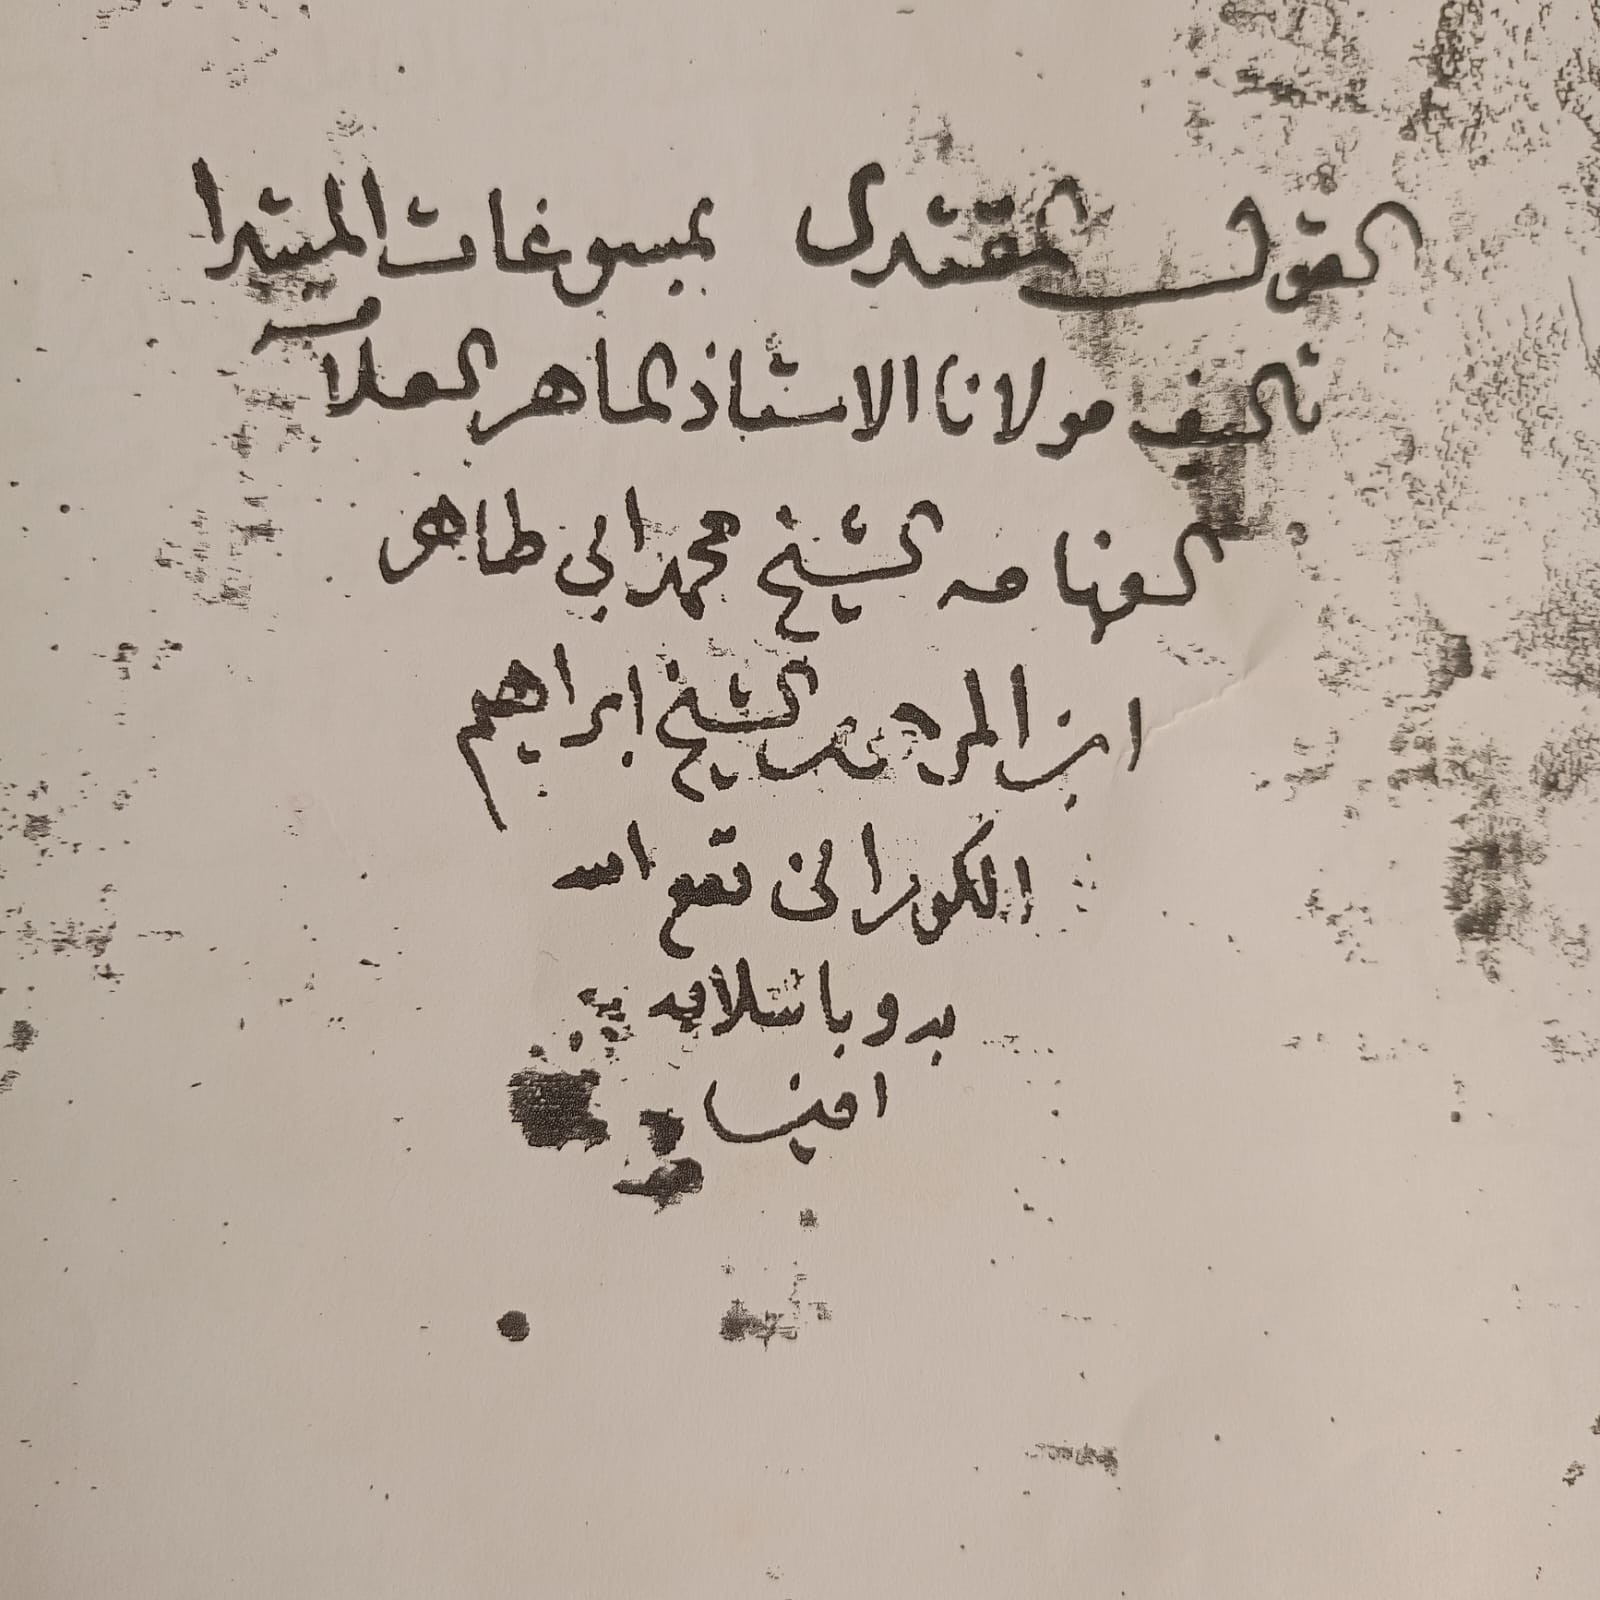 القول المقتدى بمسوغات المبتدا
تاليف مولانا الاستاذ الماهر العلامة
الفهامه الشيخ محمد ابي طاهر
ابن المرحوم الشيخ ابراهيم
الكوراني نفع الله
به وباسلافه
امين